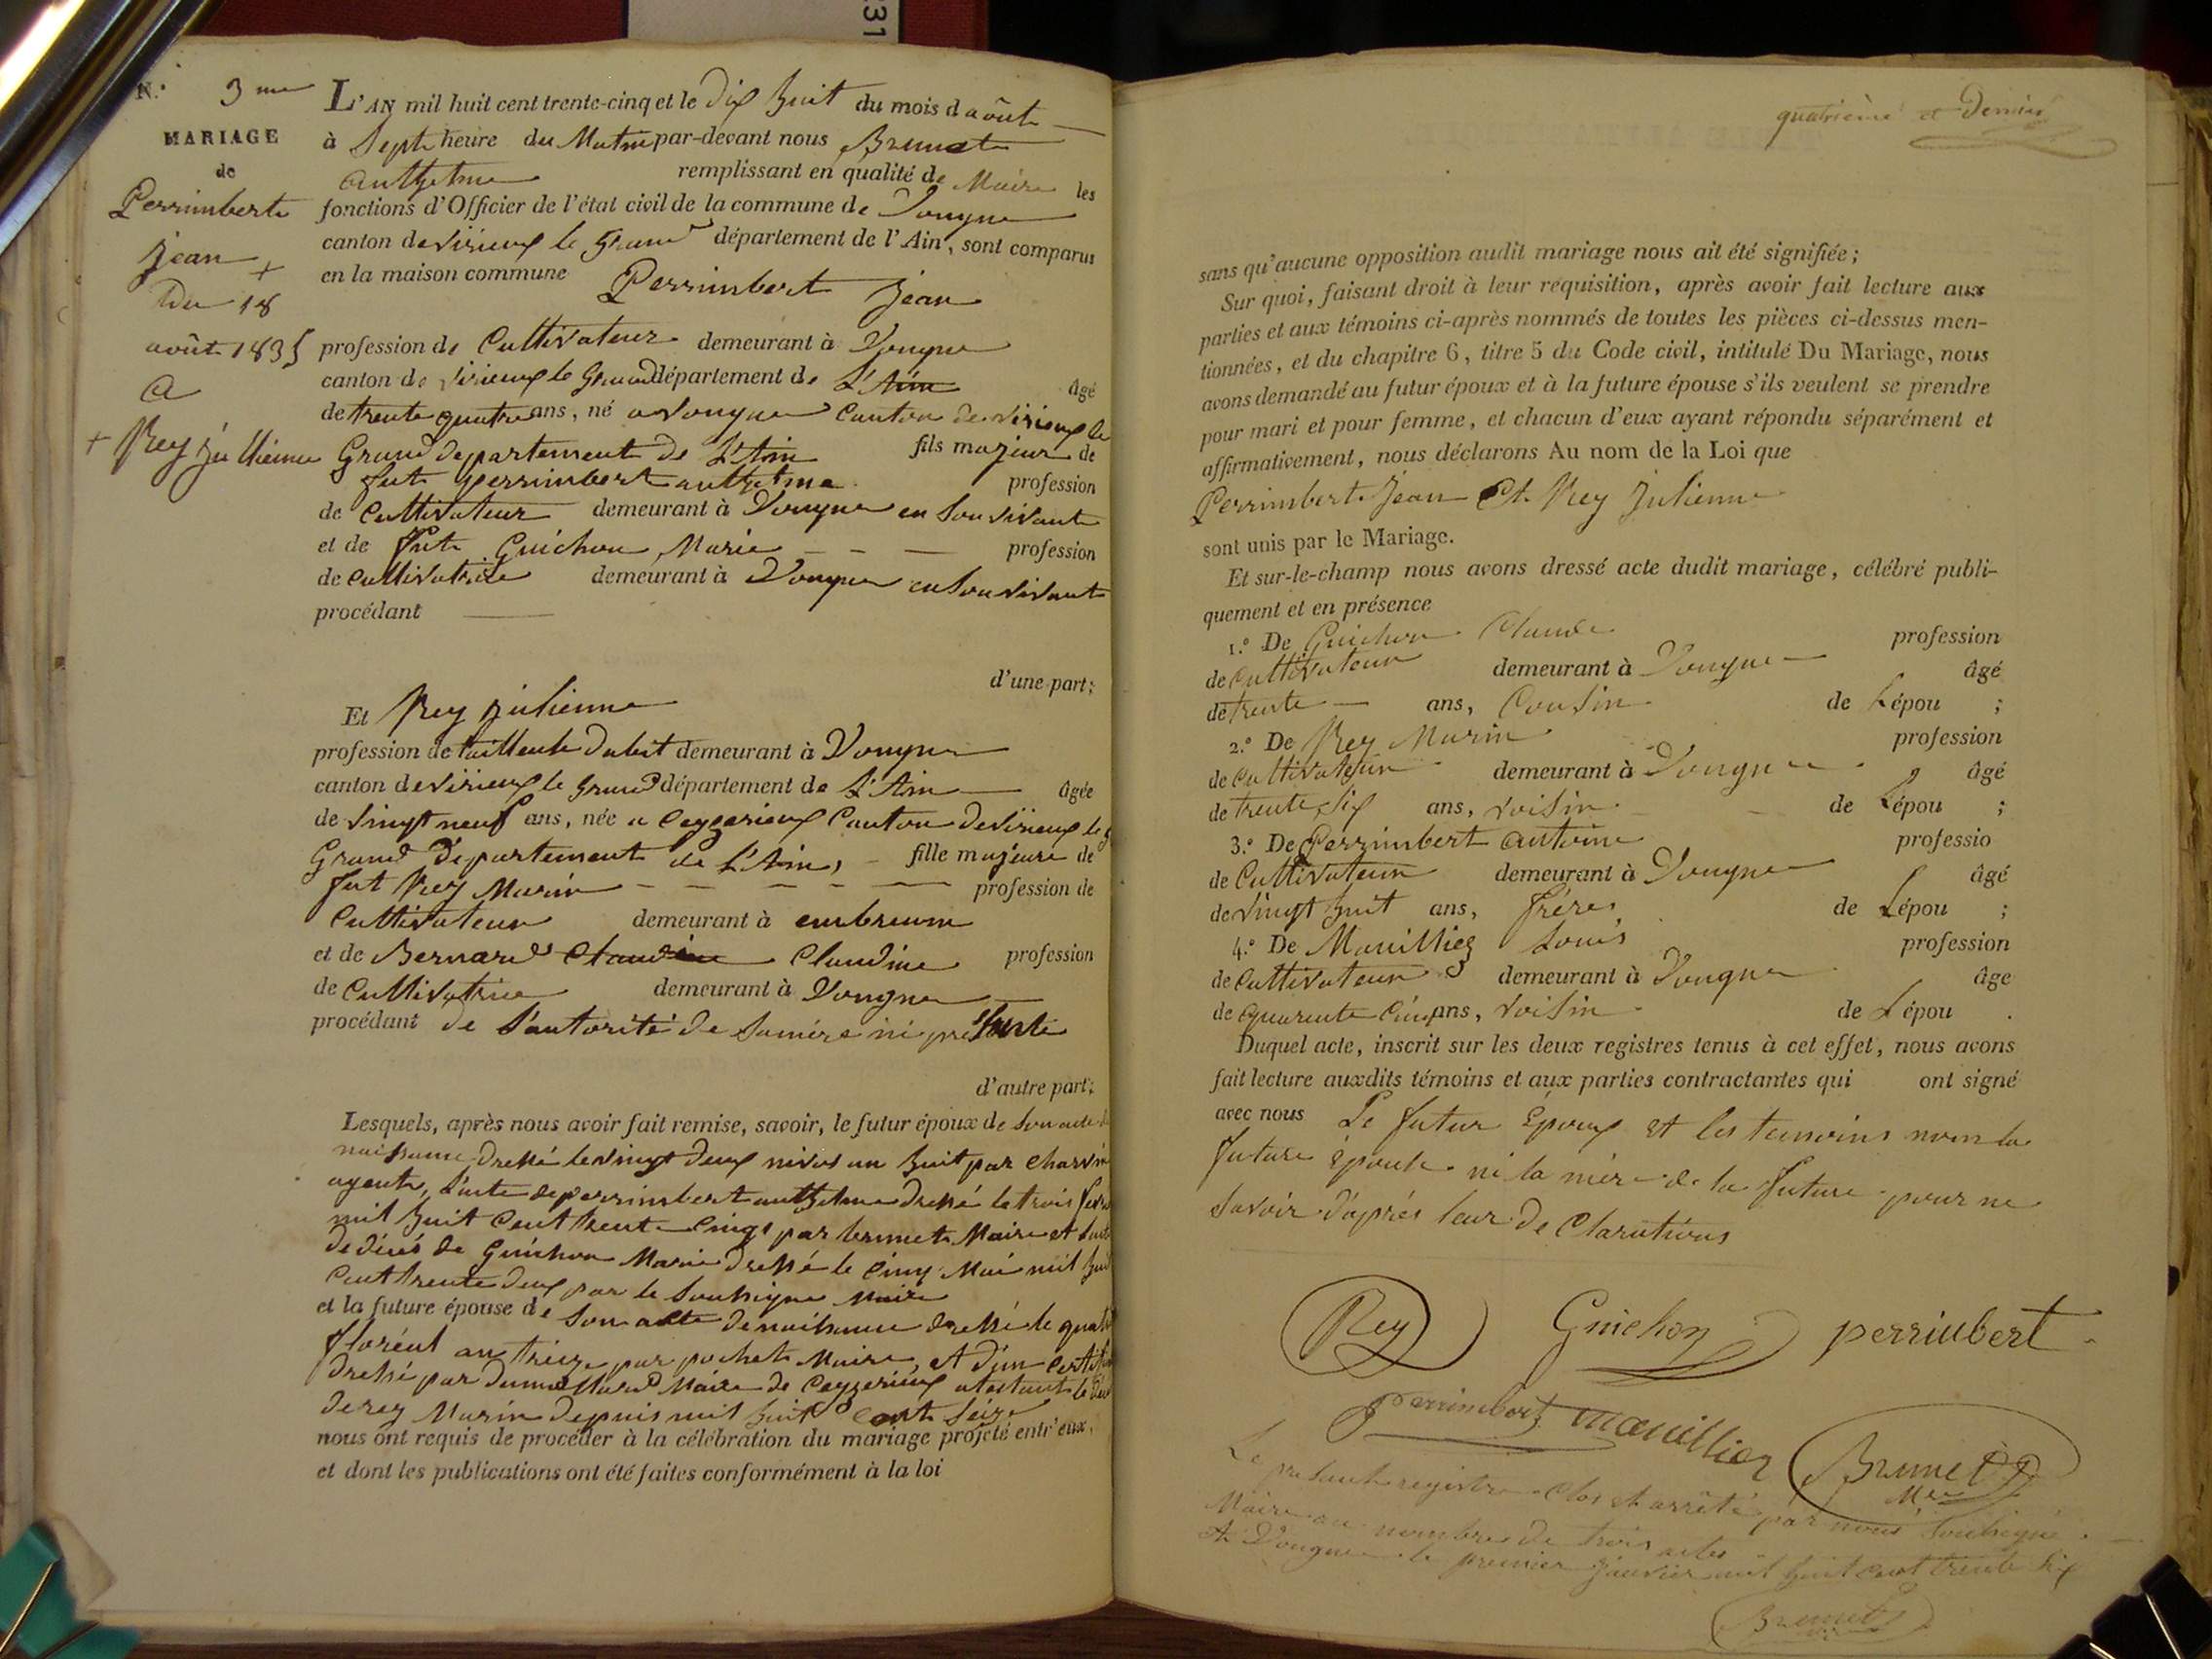 231
N.° 3me
MARIAGE
de
Perrimbert
jean +
Du 18
août 1835
a
+ Rey julienne
L'AN mil huit cent trente-cinq et le dix huit du mois daoût
à Sept heure du Matin par-devant nous Brunet
anthelme remplissant en qualité de Maire les
fonctions d'Officier de l'état civil de la commune de Vongne
canton de virieux le grand département de l'Ain, sont comparus
en la maison commune Perrimbert jean
profession de Cultivateur demeurant à Vongne
canton de virieux le Grand département de L'Ain âgé
de trente quatre ans, né a Vongne Canton de virieux le
Grand departement de L'Ain fils majeur de
fut perrimbert anthelme profession
de Cultivateur demeurant à Vongne en Son vivant
et de fut Guichon Marie profession
de cultivatrice demeurant à Vongne en Son vivant
procédant
d'une part;
Et Rey julienne
profession de tailleuse dabit demeurant à Vongne
canton de virieux le grand département de L'Ain âgée
de vingt neuf ans, née a Ceyzerieux Canton de virieux le
Grand département de L'Ain, fille majeure de
fut Rey Marin profession de
Cultivateur demeurant à
et de Bernard Claudine Claudine profession
de Cultivatrice demeurant à Vongne
procédant de L'autorité de Samère ici présente
d'autre part;
Lesquels, après nous avoir fait remise, savoir, le futur époux de Son acte de
naissance dressé le vingt deux nivos an huit par
agent, L'acte de perrimbert anthelme dressé le trois
mil huit Cent trente Cinq par brunet Maire et
de décès de Guichon Marie dressé le Cinq Mai mil huit
Cent trente deux par le Soussigné Maire
et la future épouse de Son acte de naissance dressé le
floréal an treize par pochet Maire, et d'un
dressé par Maire de Ceyzerieux atestant le
de rey Marin depuis mil huit Cent Seize
nous ont requis de procéder à la célébration du mariage projeté entr'eux,
et dont les publications ont été faites conformément à la loi
quatrième et Dernier
sans qu'aucune opposition audit mariage nous ait été signifiée;
Sur quoi, faisant droit à leur réquisition, après avoir fait lecture aux
parties et aux témoins ci-après nommés de toutes les pièces ci-dessus men-
tionnées, et du chapitre 6, titre 5 du Code civil, intitulé Du Mariage, nous
avons demandé au futur époux et à la future épouse s'ils veulent se prendre
pour mari et pour femme, et chacun d'eux ayant répondu séparément et
affirmativement, nous déclarons Au nom de la Loi que
Perrimbert Jean Et Rey Julienne
sont unis par le Mariage.
Et sur-le-champ nous avons dressé acte dudit mariage, célébré publi-
quement et en présence
1.° De Guichon Claude profession
de Cultivateur demeurant à Vongne âgé
de trente ans, Cousin de Lépou ;
2.° De Rey Marin profession
de Cultivateur demeurant à Vongne âgé
de trente Six ans, voisin de Lépou ;
3.° De Perrimbert antoine professio
de Cultivateur demeurant à Vongne âgé
de vingt huit ans, frère de Lépou ;
4.° De Mouilliez Louis profession
de Cultivateur demeurant à Vongne âge
de quarente Cinq ans, voisin de Lépou .
Duquel acte, inscrit sur les deux registres tenus à cet effet, nous avons
fait lecture auxdits témoins et aux parties contractantes qui ont signé
avec nous Le futur Époux et les temoins nom la
future épouse ni la mère de la future pour ne
Savoir d'après leur de Clarations
Rey Guichon perrinbert
Perrimbert Brunet Mre
Le présente registre Clos et arrêté par nous Soussigné
Maire au nombre de trois actes
A Vongne le premier janvier mil huit Cent trente Six
Brunet